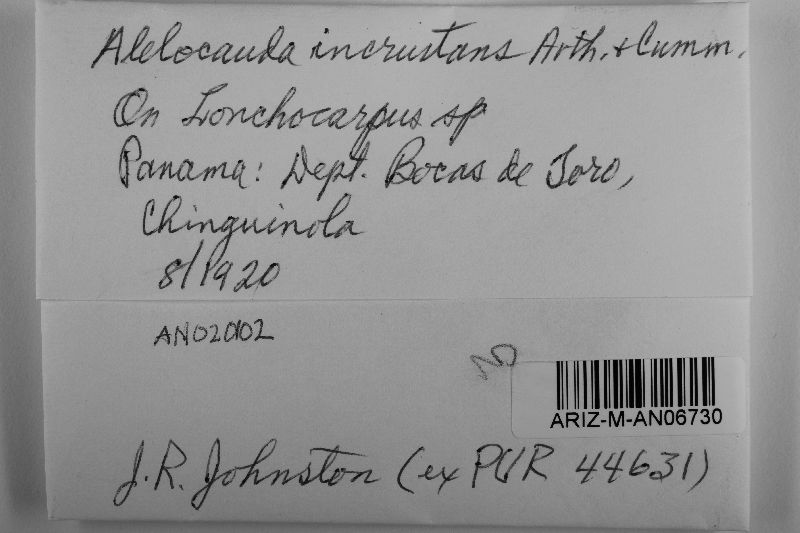 Alelocauda incrustans Arth. & Cumm.
On Lonchocarpus sp
Panama: Dept. Bocas de Toro,
Chinguinola
8/1920
AN020102
ARIZ-M-AN06730
J.R. Johnston (ex PUR 44631)